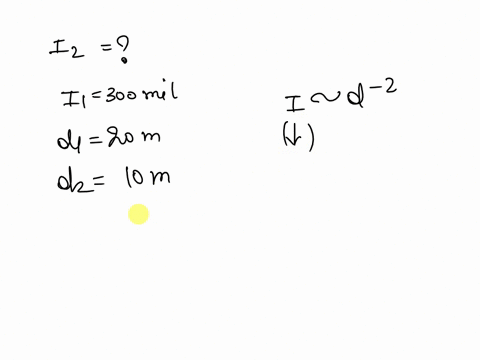 I₂ = ?
I₁ = 300 mil
d₁ = 20 m
d₂ = 10 m
I ~ d⁻²
(↓)